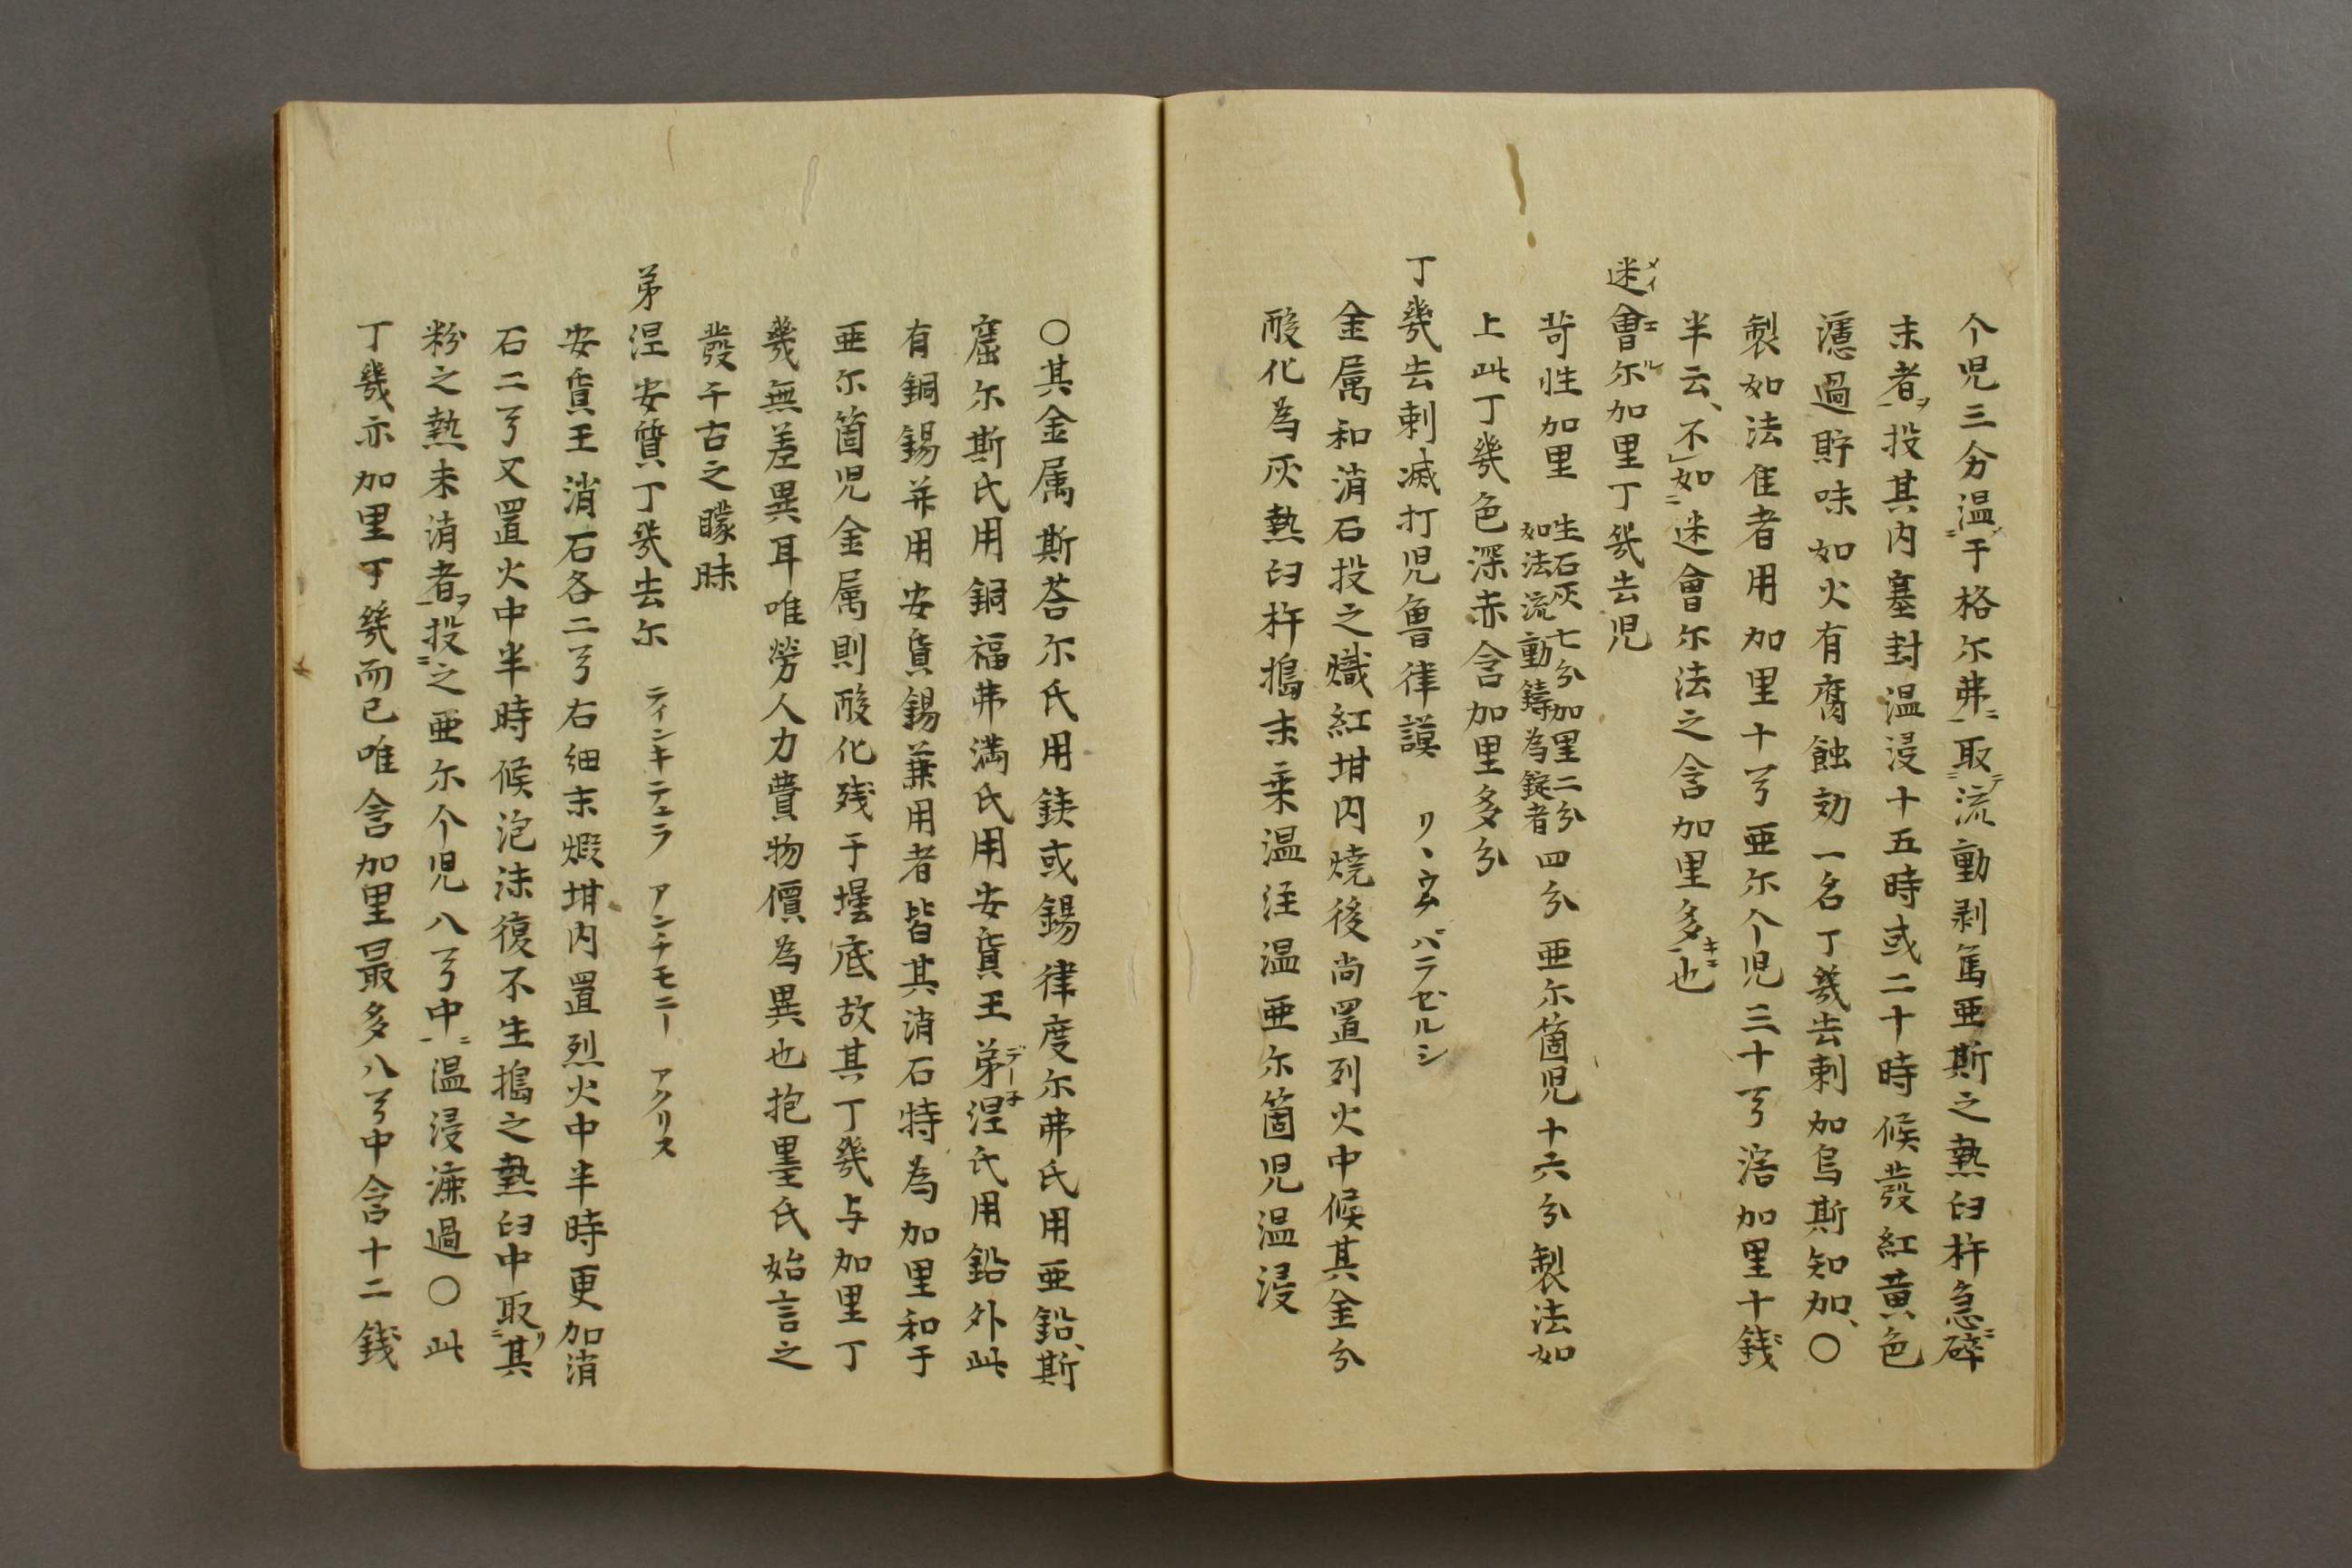 个児三分温于格尓弗取流動剥篤亜斯之熱臼杵急碎
末者投其内塞封温浸十五時或二十時候發紅黄色
濾過貯味如火有腐蝕効一名丁幾去剌加烏斯知加〇
製如法隹者用加里十㕥亜尓个児三十㕥溶加里十錢
半云不如迷會尓法之含加里多也
迷會尓加里丁幾去児
苛性加里 生石灰七分加里二分如法流動鑄為錠者 四分亜尓箇児十六分製法如
上此丁幾色深赤含加里多分
丁幾去剌滅打児魯律謨 リヽウム バラゼルシ
金属和消石投之熾紅坩内焼後尚置列火中候其金分
酸化為灰熱臼杵搗末乗温注温亜尓箇児温浸
〇其金属斯荅尓氏用鉄或錫律度尓弗氏用亜鉛斯
窟尓斯氏用銅福弗満氏用安貭王弟涅氏用鉛外此
有銅錫并用安貭錫兼用者皆其消石特為加里和于
亜尓箇児金属則酸化残于墁底故其丁幾与加里丁
幾無差異耳唯勞人力費物價為異也抱里氏始言之
發千古之矇昧
弟涅安質丁幾去尓 ティンキテュラ アンチモニー アクリス
安貭王消石各二㕥右細末煅坩内置烈火中半時更加消
石二㕥又置火中半時候泡沫復不生搗之熱臼中取其
粉之熱未消者投之亜尓个児八㕥中温浸濾過〇此
丁幾亦加里丁幾而已唯含加里最多八㕥中含十二錢